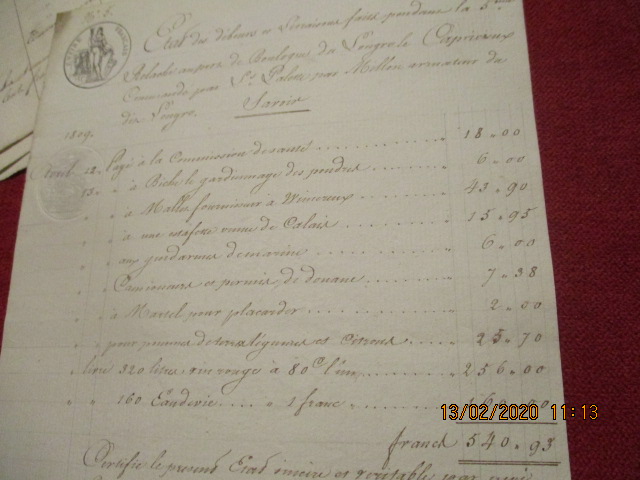 Etat des débours et Livraisons faits pendant la 5me
Relache au port de Boulogne du Lougre le Capricieux
Commandé par St par armateur du
dit Lougre.
Savoir
1809.
Aoust 12. Payé à la Commission de santé 18.00
13. " à le gardiennage des poudres 6.00
" " à Mallet fournisseur à Wimereux 43.90
" " à une estafette venue de Calais 15.95
" " aux gendarmes de marine 6.00
" " et permis de douane 7.38
" " à Martel pour placarder 2.00
" " pour pommes de terre légumes et Citrons 25.70
" livré 320 litres vin rouge à 80c l'un 256.00
" " 160 Eaudevie " 1 franc " 160.00
francs 540.93
Certifié le présent Etat sincère et véritable par moi
13/02/2020 11:13